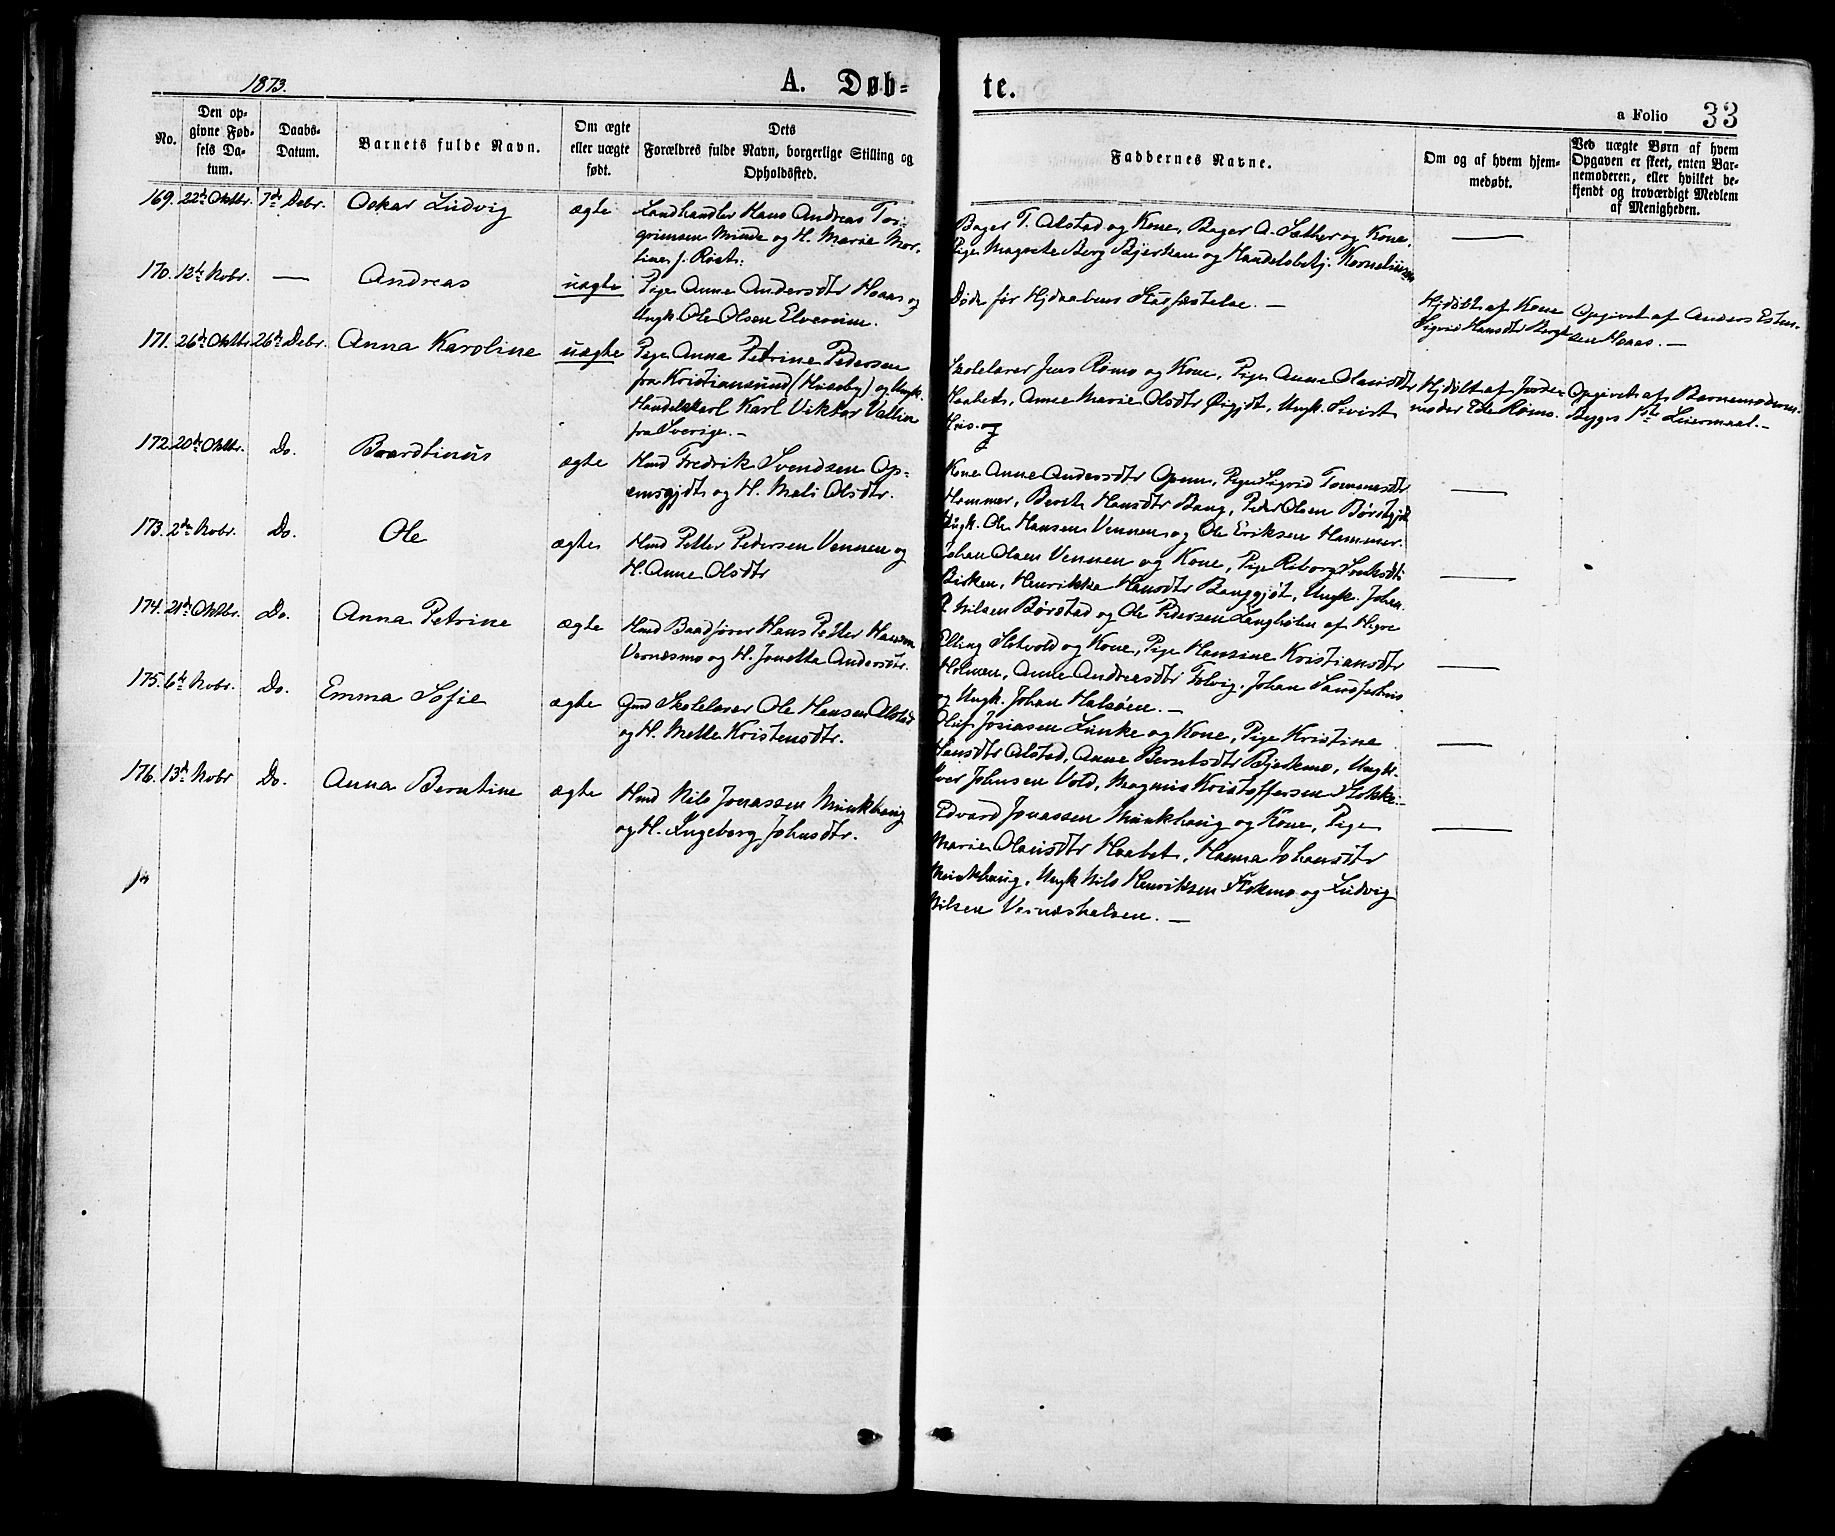 1873.
A. Døb-
te.
a Folio 33
No.
Den op-
givne Fød-
sels Da-
tum.
Daabs-
Datum.
Barnets fulde Navn.
Om ægte
eller uægte
født.
Dets
Forældres fulde Navn, borgerlige Stilling og
Opholdssted.
Faddernes Navne.
Om og af hvem hjem-
medøbt.
Ved uægte Børn af hvem
Opgaven er skeet, enten Bar-
nemoderen, eller hvilket be-
kjendt og troværdigt Medlem
af Menigheden.
169. 22de Oktbr. 7de Debr. Oskar Ludvig ægte
Landhandler Hans Andreas Tor-
grimsen Minde og H. Marie Mar-
tine f. Røst.
Bager T. Alstad og Kone, Bager A. Sæther og Kone,
Pige Magrete Berg Bjerkan og Handelsbetj. Korneliusen
170. 12te Novbr. — Andreas uægte
Pige Anne Andersdtr Haaas og
Ungk. Ole Olsen Elverum.
Døde før Hjdaabens Stadfæstelse. —
Hjdøbt af Kone
Sigrid Hansdtr Berg
Opgivet af Anders Esten-
sen Haaas. —
171. 26de Oktbr. 26de Debr. Anna Karoline uægte
Pige Anna Petrine Pedersen
fra Kristiansund (Huseby) og Ungk.
Handelskarl Karl Viktor Vallin
fra Sverige. —
Skolelærer Jens Rømo og Kone, Pige Anne Olausdtr
Haabet, Anne Marie Olsdtr Øigjdt, Ungk. Sivert
Hjdøbt af Jorde-
moder Ede Rømo.
Opgivet af Barnemoderen.
Begges 1ste Leiermaal. —
172. 20de Oktbr. Do. Baardtinus ægte
Hmd Fredrik Svendsen Op-
emsgjdt og H. Mali Olsdtr.
Kone Anne Andersdtr Opem, Pige Sigrid Tomemsdtr
Hammer, Berit Hansdtr Bang, Peder Olsen Børstgjdt
Ungk. Ole Hansen Vennen og Ole Eriksen Hammer.
—
173. 2den Novbr. Do. Ole ægte
Hmd Petter Pedersen Vennen og
H. Anne Olsdtr
Johan Olsen Vennen og Kone, Pige
Birken, Henrikke Hansdtr Banggjdt, Ungk. Johan
P. Nilsen Børstad og Ole Pedersen Langhølen af Hegre
—
174. 21de Oktbr. Do. Anna Petrine ægte
Hmd Baadfører Hans Petter Hansen
Vernesmo og H. Jonetta Andersdtr.
Elling Slotvold og Kone, Pige Hansine Kristiansdtr
Holmen, Anne Andreasdtr Folvig, Johan
og Ungk. Johan Halsøen. —
—
175. 6te Novbr. Do. Emma Sofie ægte
Gmd Skolelærer Ole Hansen Alstad
og H. Mette Kristensdtr.
Oluf Josiasen Lunke og Kone, Pige Kristine
Hansdtr Alstad, Anne Berntsdtr Bjerkmo, Ungk.
Iver Johnsen Vold, Magnus Kristoffersen Stokke.
—
176. 13de Novbr Do. Anna Berntine ægte
Hmd Nils Jonassen Munkhaug
og H. Ingeborg Johnsdtr.
Edvard Jonassen Munkhaug og Kone, Pige
Marie Olausdtr Haabet, Hanna Johansdtr
Munkhaug, Ungk Nils Henriksen Stokmo og Ludvig
Nilsen Vernæshalsen. —
—